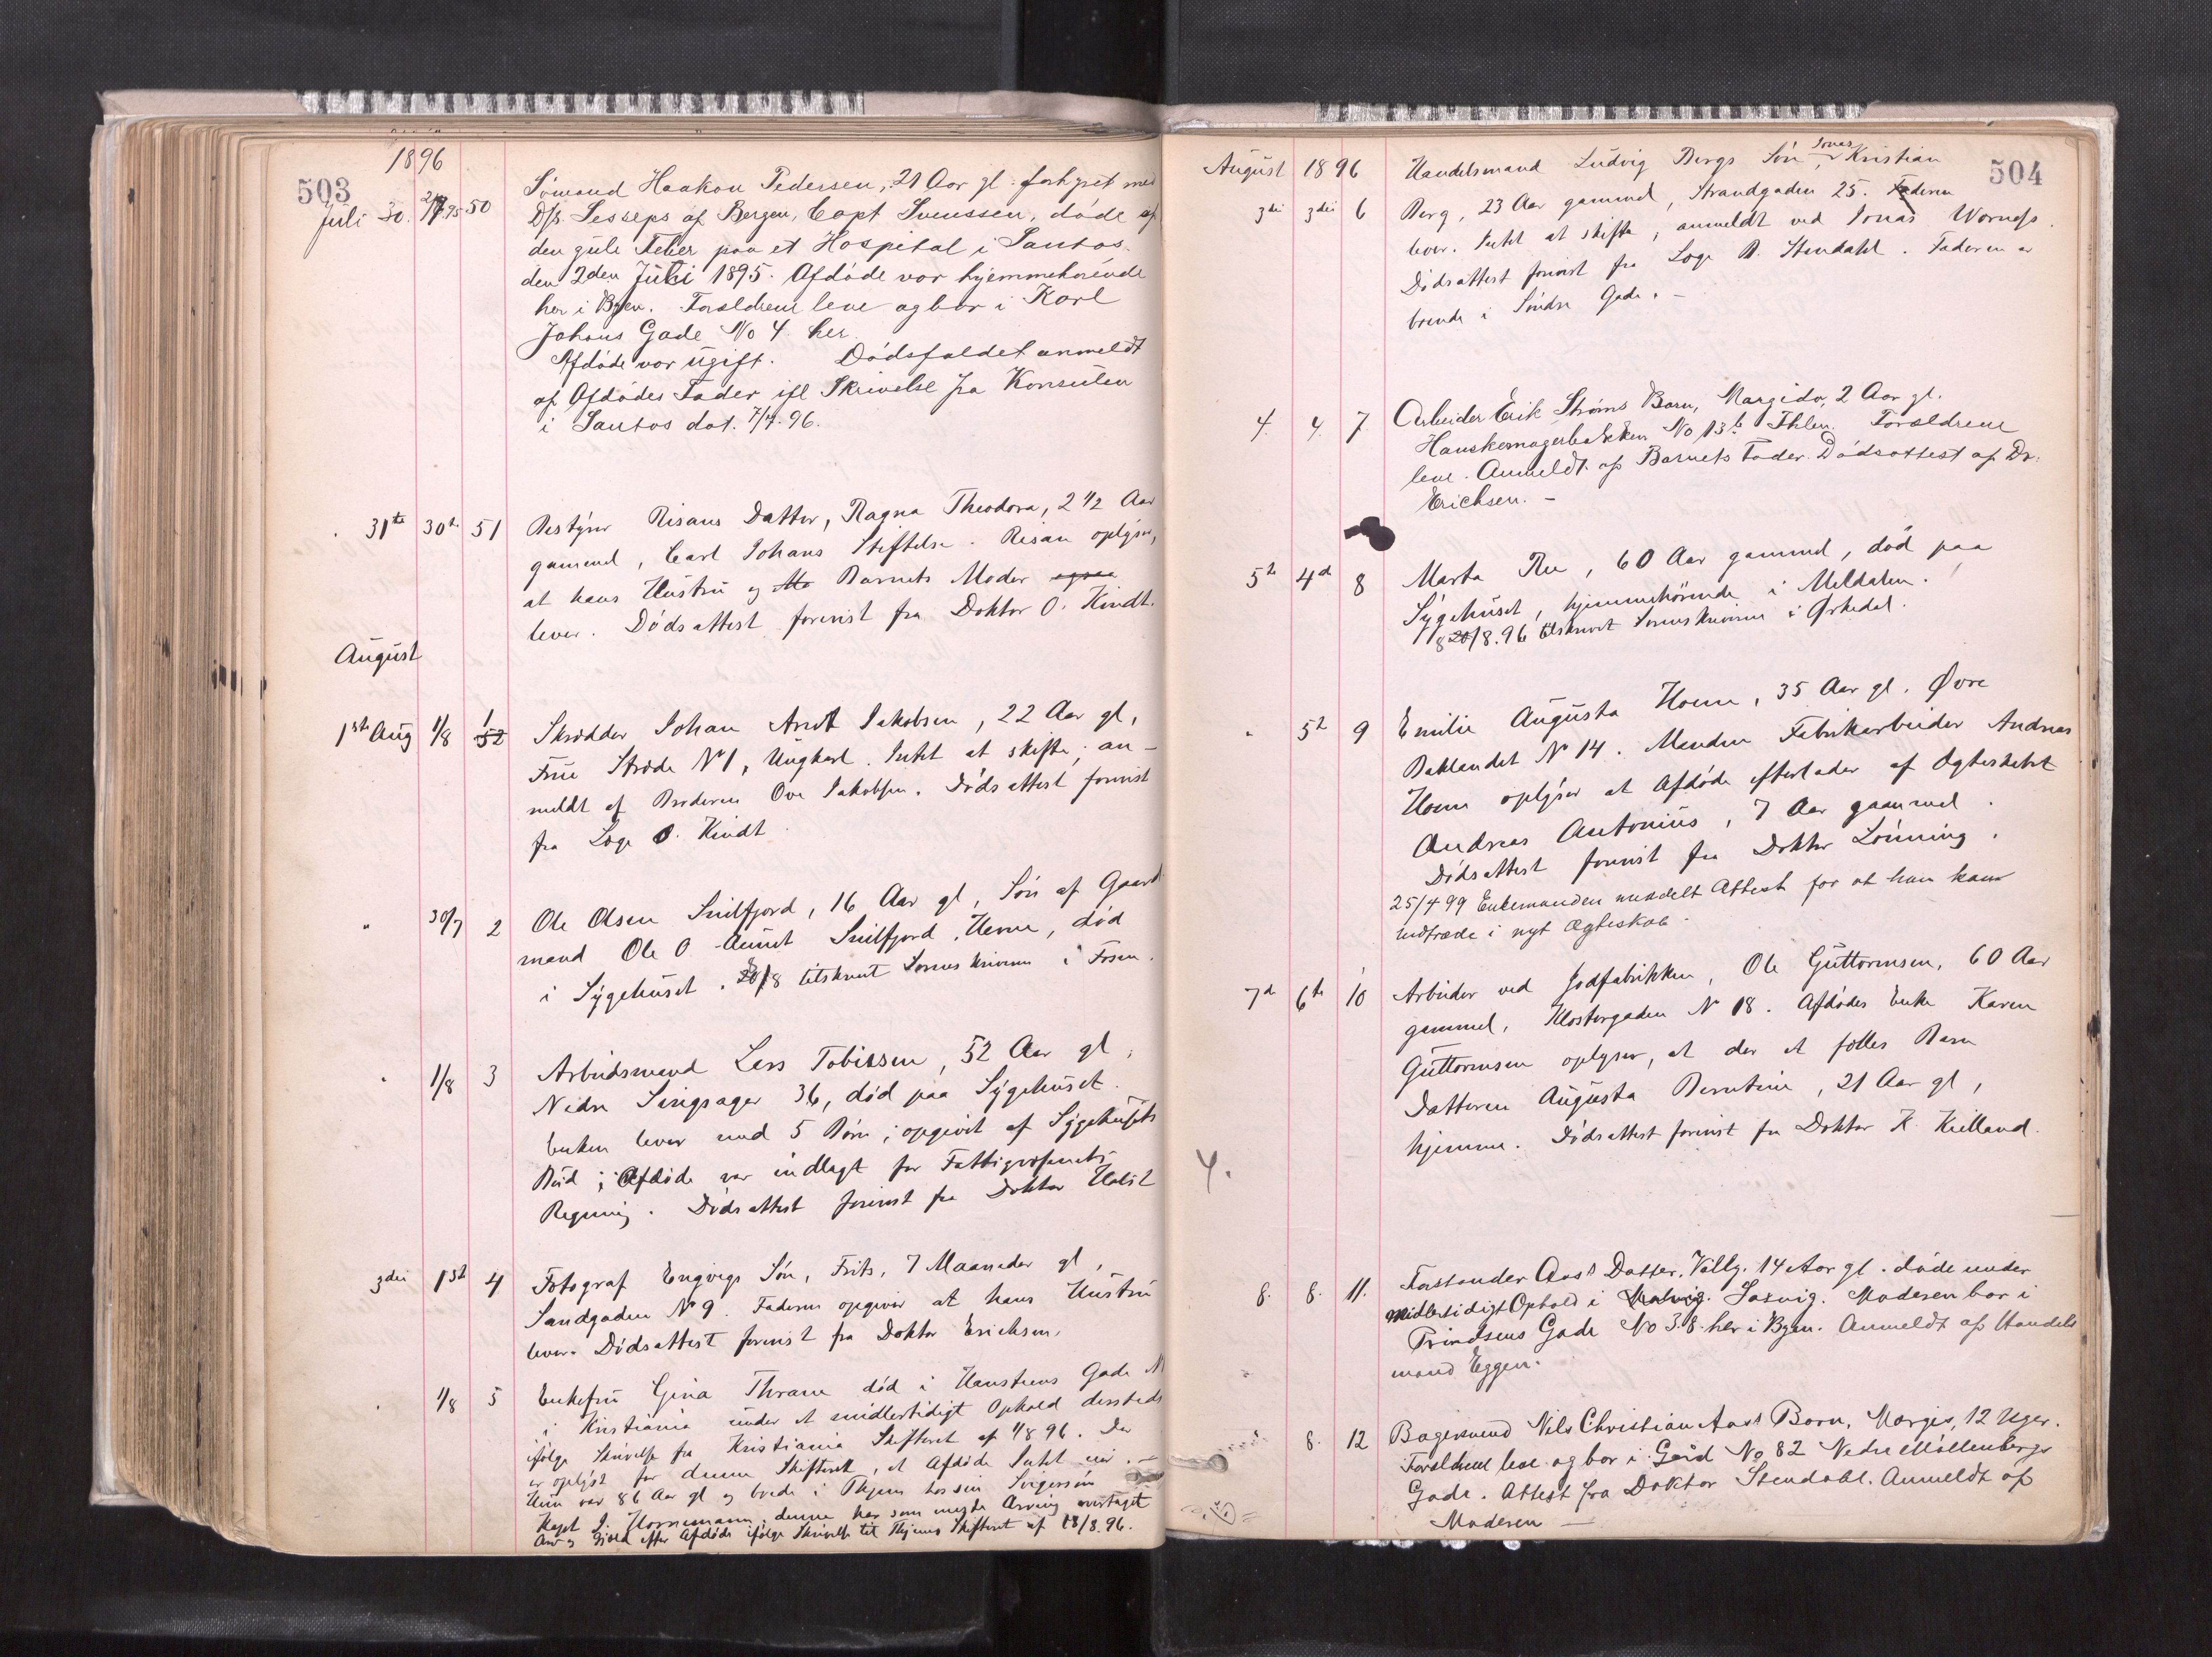 1896
503
Juli 30. 2/7 95 50 Sömand Haakon Pedersen, 21 Aar gl. forhyret med
D/S Lesseps af Bergen, Capt Svenssen, döde af
den gule Feber paa et Hospital i Santos
den 2den Juli 1895. Afdöde var hjemmehörende
her i Byen. Forældrene leve og bor i Karl
Johans Gade No 4 her.
Afdöde var ugift. Dödsfaldet anmeldt
af Afdödes Fader ifl Skrivelse fra Konsulen
i Santos dat. 7/7. 96.
31te 30te 51 Bestyrer Risans Datter, Ragna Theodora, 2 1/2 Aar
gammel, Carl Johans Stiftelse. Risan oplyser,
at hans Hustru og Barnets Moder
lever. Dödsattest forevist fra Doktor O. Kindt.
August
1ste Aug 1/8 52 1 Skrædder Johan Arnt Jakobsen, 22 Aar gl,
Frue Stræde No 1, Ungkarl. Intet at skifte; an-
meldt af Broderen Ove Jakobsen. Dödsattest forevist
fra Læge O. Kindt.
" 30/7 2 Ole Olsen Snilfjord, 16 Aar gl, Sön af Gaard
mand Ole O. Aunet Snilfjord, Hevne, död
i Sygehuset. /8 tilskrevet Sorenskriveren i Fosen.
" 1/8 3 Arbeidsmand Lars Tobiassen, 52 Aar gl,
Nedre Singsager 36, död paa Sygehuset.
Enken lever med 5 Börn; opgivet af Sygehusets
Bud; Afdöde var indlagt for Fattigvæsenets
Regning. Dödsattest forevist fra Doktor Holst
3die 1ste 4 Fotograf Engvigs Sön, Frits, 7 Maaneder gl,
Sandgaden No 9. Faderen opgiver at hans Hustru
lever. Dödsattest forevist fra Doktor Erichsen.
" 1/8 5 Enkefru Gina Thrane död i Hansteens Gade N
i Kristiania under et midlertidigt Ophold dersteds
ifölge Skrivelse fra Kristiania Skifteret af 4/8 96. Der
er oplyst for denne Skifteret, at Afdöde Intet eier.
Hun var 86 Aar gl og boede i Thjem hos sin Svigersön
Kapt J. Hornemann; denne har som myndig Arving overtaget
Arv og Gjæld efter Afdöde ifölge Skrivelse til Thjems Skifteret af 18/8. 96.
August 1896
504
3die 3die 6 Handelsmand Ludvig Bergs Sön Jonas Kristian
Berg, 23 Aar gammel, Strandgaden 25. Faderen
lever. Intet at skifte, anmeldt ved Jonas
Dödsattest forevist fra Læge B. Stendahl. Faderen er
boende i Söndre Gade. -
4. 4. 7. Arbeider Erik Ströms Barn, Margido, 2 Aar gl.
Hanskemagerbakken No 13b Ihlen. Forældrene
leve. Anmeldt af Barnets Fader. Dödsattest af Dr.
Erichsen. -
5te 4de 8 Marta Ree, 60 Aar gammel, död paa
Sygehuset, hjemmehörende i Meldalen.
/8. 96 tilskrevet Sorenskriveren i Ørkedal.
" 5te 9 Emilie Augusta Hoem, 35 Aar gl. Øvre
Baklandet No 14. Manden Fabrikarbeider Andreas
Hoem oplyser at Afdöde efterlader af Ægteskabet
Andreas Antonius, 7 Aar gammel.
Dödsattest forevist fra Doktor Lönning.
25/4 99 Enkemanden meddelt Attest for at han kan
indtræde i nyt Ægteskab.
7de 6te 10 Arbeider ved Jodfabrikken, Ole Guttormsen, 60 Aar
gammel, Klostergaden No 18. Afdödes Enke Karen
Guttormsen oplyser, at der et fælles Barn
Datteren Augusta Berntine, 21 Aar gl,
hjemme. Dödsattest forevist fra Doktor K. Kielland.
4.
8. 8. 11. Forstander Aas's Datter, Vally. 14 Aar gl. döde under
Midlertidigt Ophold i Malvig. Saxvig. Moderen bor i
Prindsens Gade No 38 her i Byen. Anmeldt af Handels
mand Eggen.
8. 12 Bagersvend Nils Christian Aas's Barn, Margit, 12 Uger.
Forældrene leve og bor i Gård No 82 Nedre Möllenbergs
Gade. Attest fra Doktor Stendahl. Anmeldt af
Moderen -